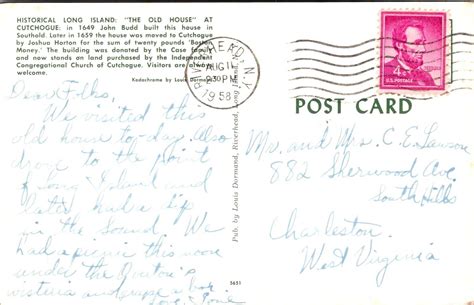 HISTORICAL LONG ISLAND: "THE OLD HOUSE" AT
CUTCHOGUE: in 1649 John Budd built this house in
Southold. Later in 1659 the house was moved to Cutchogue
by Joshua Horton for the sum of twenty pounds 'Boston
Money.' The building was donated by the Case family
and now stands on land purchased by the Independent
Congregational Church of Cutchogue. Visitors are always
welcome.
Kodachrome by Louis Dormand
RIVERHEAD, N.Y.
AUG 11
930 PM
1958
4¢
U.S. POSTAGE
POST CARD
Pub. by Louis Dormand, Riverhead, Long Island
3651
Dear Folks,
We visited this
old house to-day. Also
drove to the point
of Long Island and
later had a dip
in the Sound. We
had a picnic this noon
under the
wisteria and grape arbor
Love,
Mr. and Mrs. C. E. Lawson
882 Sherwood Ave.
South Hills
Charleston
West Virginia